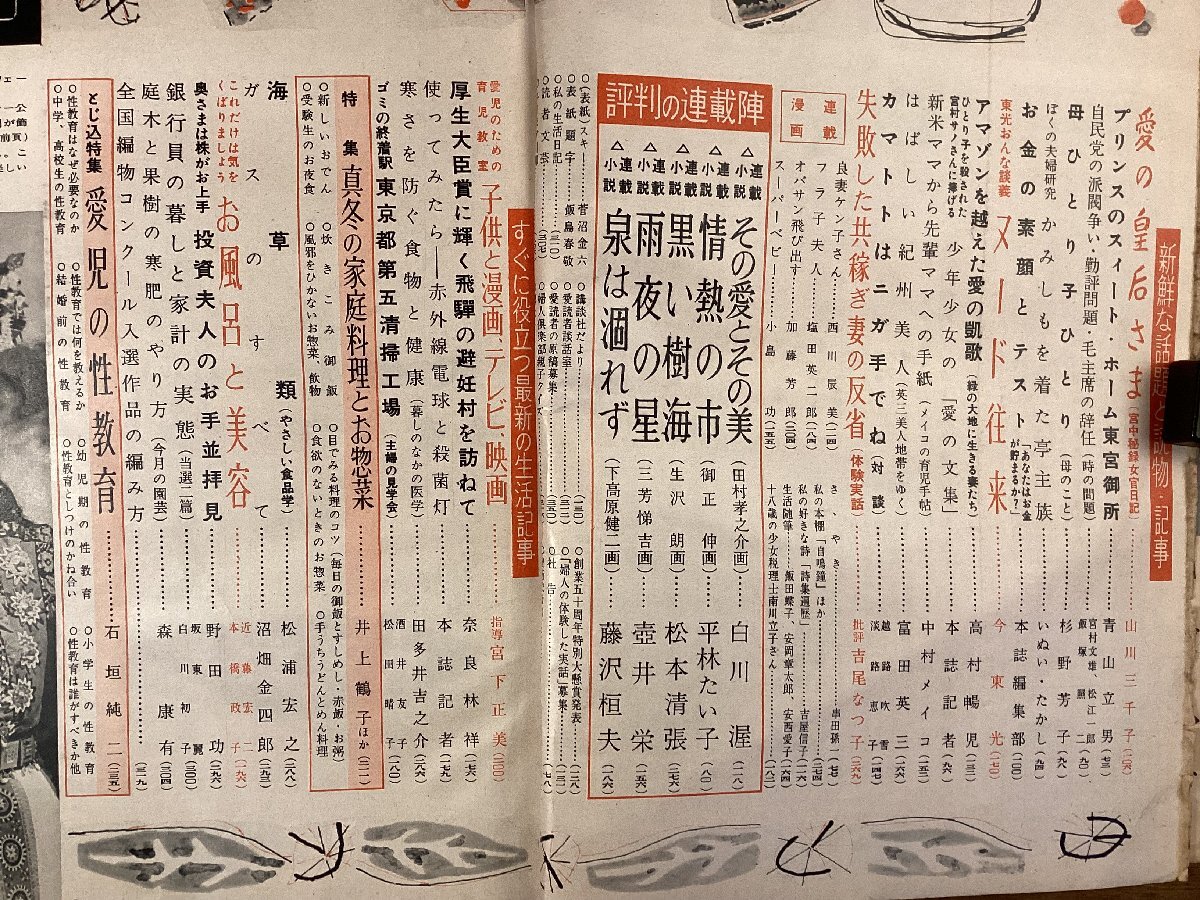 新鮮な話題と読物・記事
愛の皇后さま(宮中秘録女官日記)……山川三千子(二〇六)
プリンスのスイート・ホーム東宮御所……青山立男(七三)
自民党の派閥争い・勤評問題・毛主席の辞任(時の問題)……宮村文雄、松江二郎
飯塚昭二(九〇)
母ひとり子ひとり(母のこと)……杉野芳子(九六)
ぼくの夫婦研究 かみしもを着た亭主族……いぬい・たかし(九四)
お金の素顔とテスト(「あなたはお金が貯まるか?」)……本誌編集部(一〇〇)
東光おんな談義 ヌード往来……今東光(七〇)
アマゾンを越えた愛の凱歌(緑の大地に生きる妻たち)……高村暢児
ひとり子を殺された
宮村サノさんに捧げる 少年少女の「愛の文集」……本誌記者
新米ママから先輩ママへの手紙(メイコの育児手帖)……中村メイコ(一五二)
はばしい紀州美人(英三美人地帯をゆく)……富田英三
カマトトはニガ手でね(対談)……越路吹雪
淡路恵子(一四七)
失敗した共稼ぎ妻の反省(体験実話)……批評吉尾なつ子(二六九)
連載漫画
良妻ケン子さん……西川辰美
フラ子夫人……塩田英二郎(一八四)
オバサン飛び出す……加藤芳郎(三三四)
スーパーベビー……小島功(二五五)
さゝやき……串田孫一(一七)
私の本棚「自鳴鐘」ほか
私の好きな詩「詩集遍歴」……吉屋信子
生活随筆……飯田蝶子、安岡章太郎、安西愛子
十八歳の少女税理士南川立子さん
評判の連載陣
△連載小説 その愛とその美(田村孝之介画)……白川渥
△連載小説 情熱の市(御正伸画)……平林たい子(八〇)
△連載小説 黒い樹海(生沢朗画)……松本清張(二七六)
△連載小説 雨夜の星(三芳悌吉画)……壺井栄
△連載小説 泉は涸れず(下高原健二画)……藤沢桓夫
○(表紙スキー)……菅沼金六
○表紙題字……飯島春敬
○私の生活日記
○読者文芸
○講談社だより
○愛読者談話室
○愛読者の原稿募集
○婦人倶楽部親子クイズ
○創業五十周年特別大懸賞発表
○「婦人の体験した実話」募集
○社告
すぐに役立つ最新の生活記事
愛児のための
育児教室 子供と漫画、テレビ、映画……指導宮下正美(三〇〇)
厚生大臣賞に輝く飛騨の避妊村を訪ねて……奈良林祥(七六)
使ってみたら――赤外線電球と殺菌灯……本誌記者
寒さを防ぐ食物と健康(暮しのなかの医学)……田多井吉之介(二六六)
ゴミの終着駅 東京都第五清掃工場(主婦の見学会)……酒井友子
松田晴子(一八〇)
特集 真冬の家庭料理とお惣菜……井上鶴子ほか(三一一)
○新しいおでん ○炊きこみ御飯 ○目でみる料理のコツ(毎日の御飯とすしめし・赤飯・お粥)
○受験生のお夜食 ○風邪をひかないお惣菜、飲物 ○食欲のないときのお惣菜 ○手うちうどんとめん料理
海草類(やさしい食品学)……松浦宏之(二八八)
ガスのすべて……沼畑金四郎(二九二)
これだけは気を
くばりましょう お風呂と美容……近藤宏二
本橋政子(二九六)
奥さまは株がお上手 投資夫人のお手並拝見……野田功
銀行員の暮しと家計の実態(当選二篇)……坂東麗子
白川初子(三〇〇)
庭木と果樹の寒肥のやり方(今月の園芸)……森康有(三〇四)
全国編物コンクール入選作品の編み方……(三一九)
とじ込特集 愛児の性教育……石垣純二(二三五)
○性教育はなぜ必要なのか ○性教育では何を教えるか ○幼児期の性教育 ○小学生の性教育
○中学、高校生の性教育 ○結婚前の性教育 ○性教育としつけのかね合い ○性教育は誰がすべきか他